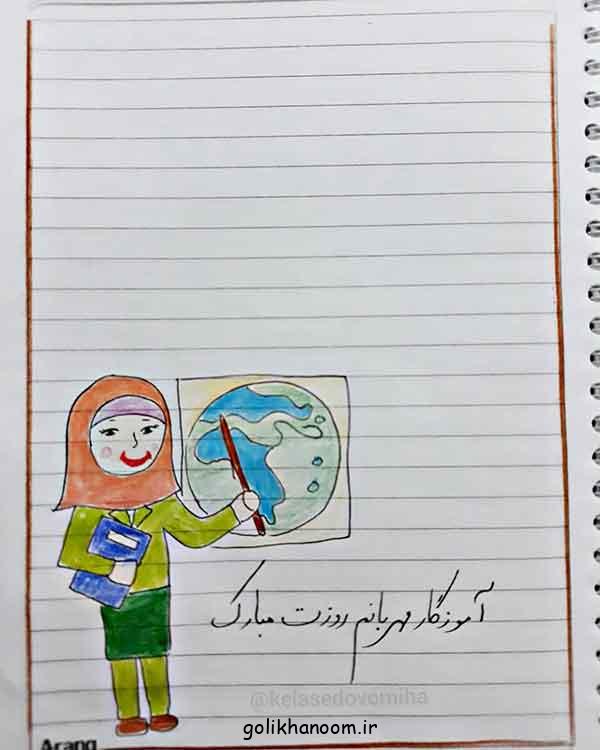 آموزگار مهربانم روزت مبارک
@kelasedovomiha
golikhanoom.ir
Arang